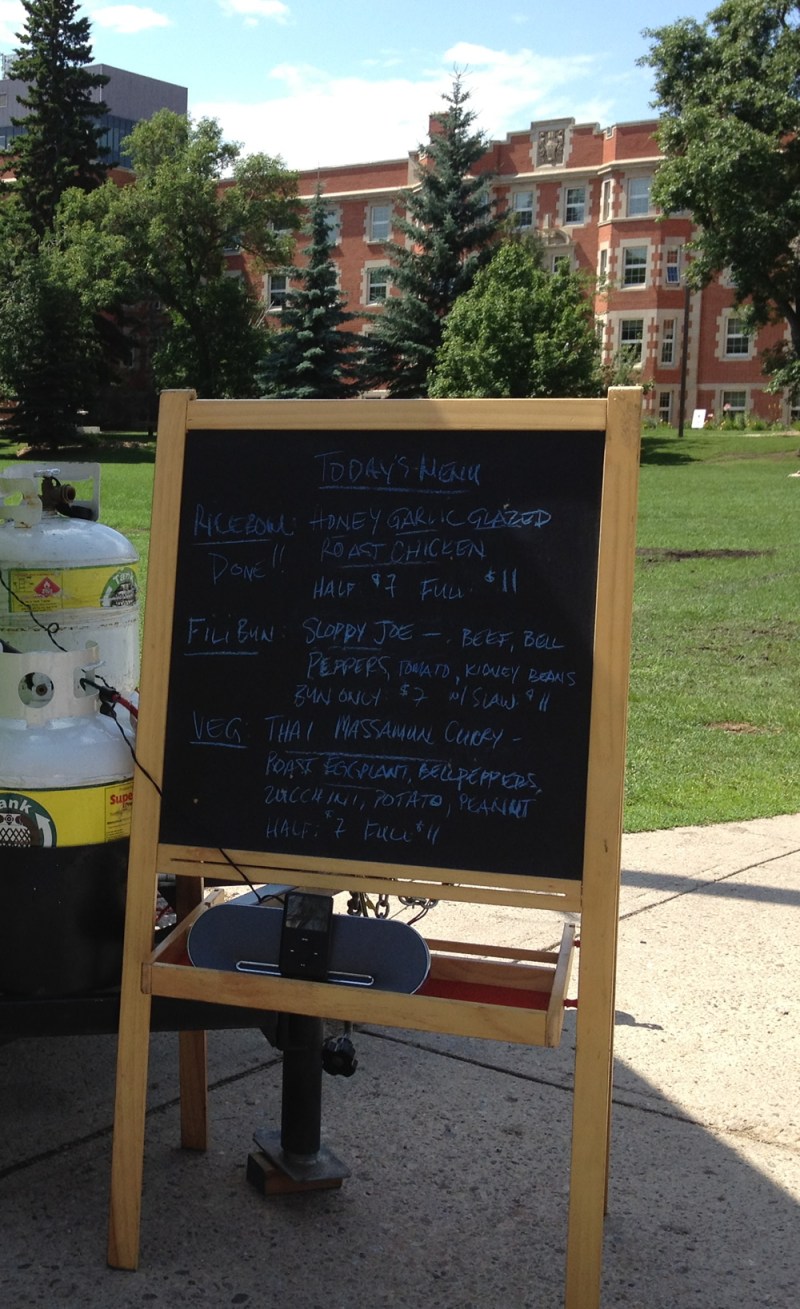 TODAY'S MENU
RICEBOWL: HONEY GARLIC GLAZED
DONE!! ROAST CHICKEN
HALF $7 FULL $11
FILIBUN: SLOPPY JOE - BEEF, BELL
PEPPERS, TOMATO, KIDNEY BEANS
BUN ONLY $7 w/ SLAW $11
VEG: THAI MASSAMUN CURRY -
ROAST EGGPLANT, BELL PEPPERS,
ZUCCHINI, POTATO, PEANUT
HALF: $7 FULL $11
ank